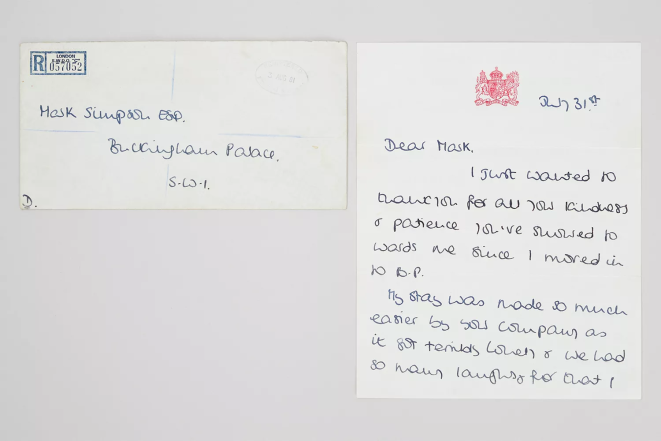 LONDON
R
057052
Mark Simpson ESQ.
Buckingham Palace.
S.W.1.
D.
July 31st
Dear Mark.
I just wanted to
thank you for all your kindness
& patience you've showed to
wards me since I moved in
to B.P.
My stay was made so much
easier by your company as
it got terribly lonely & we had
so many laughs, for that I